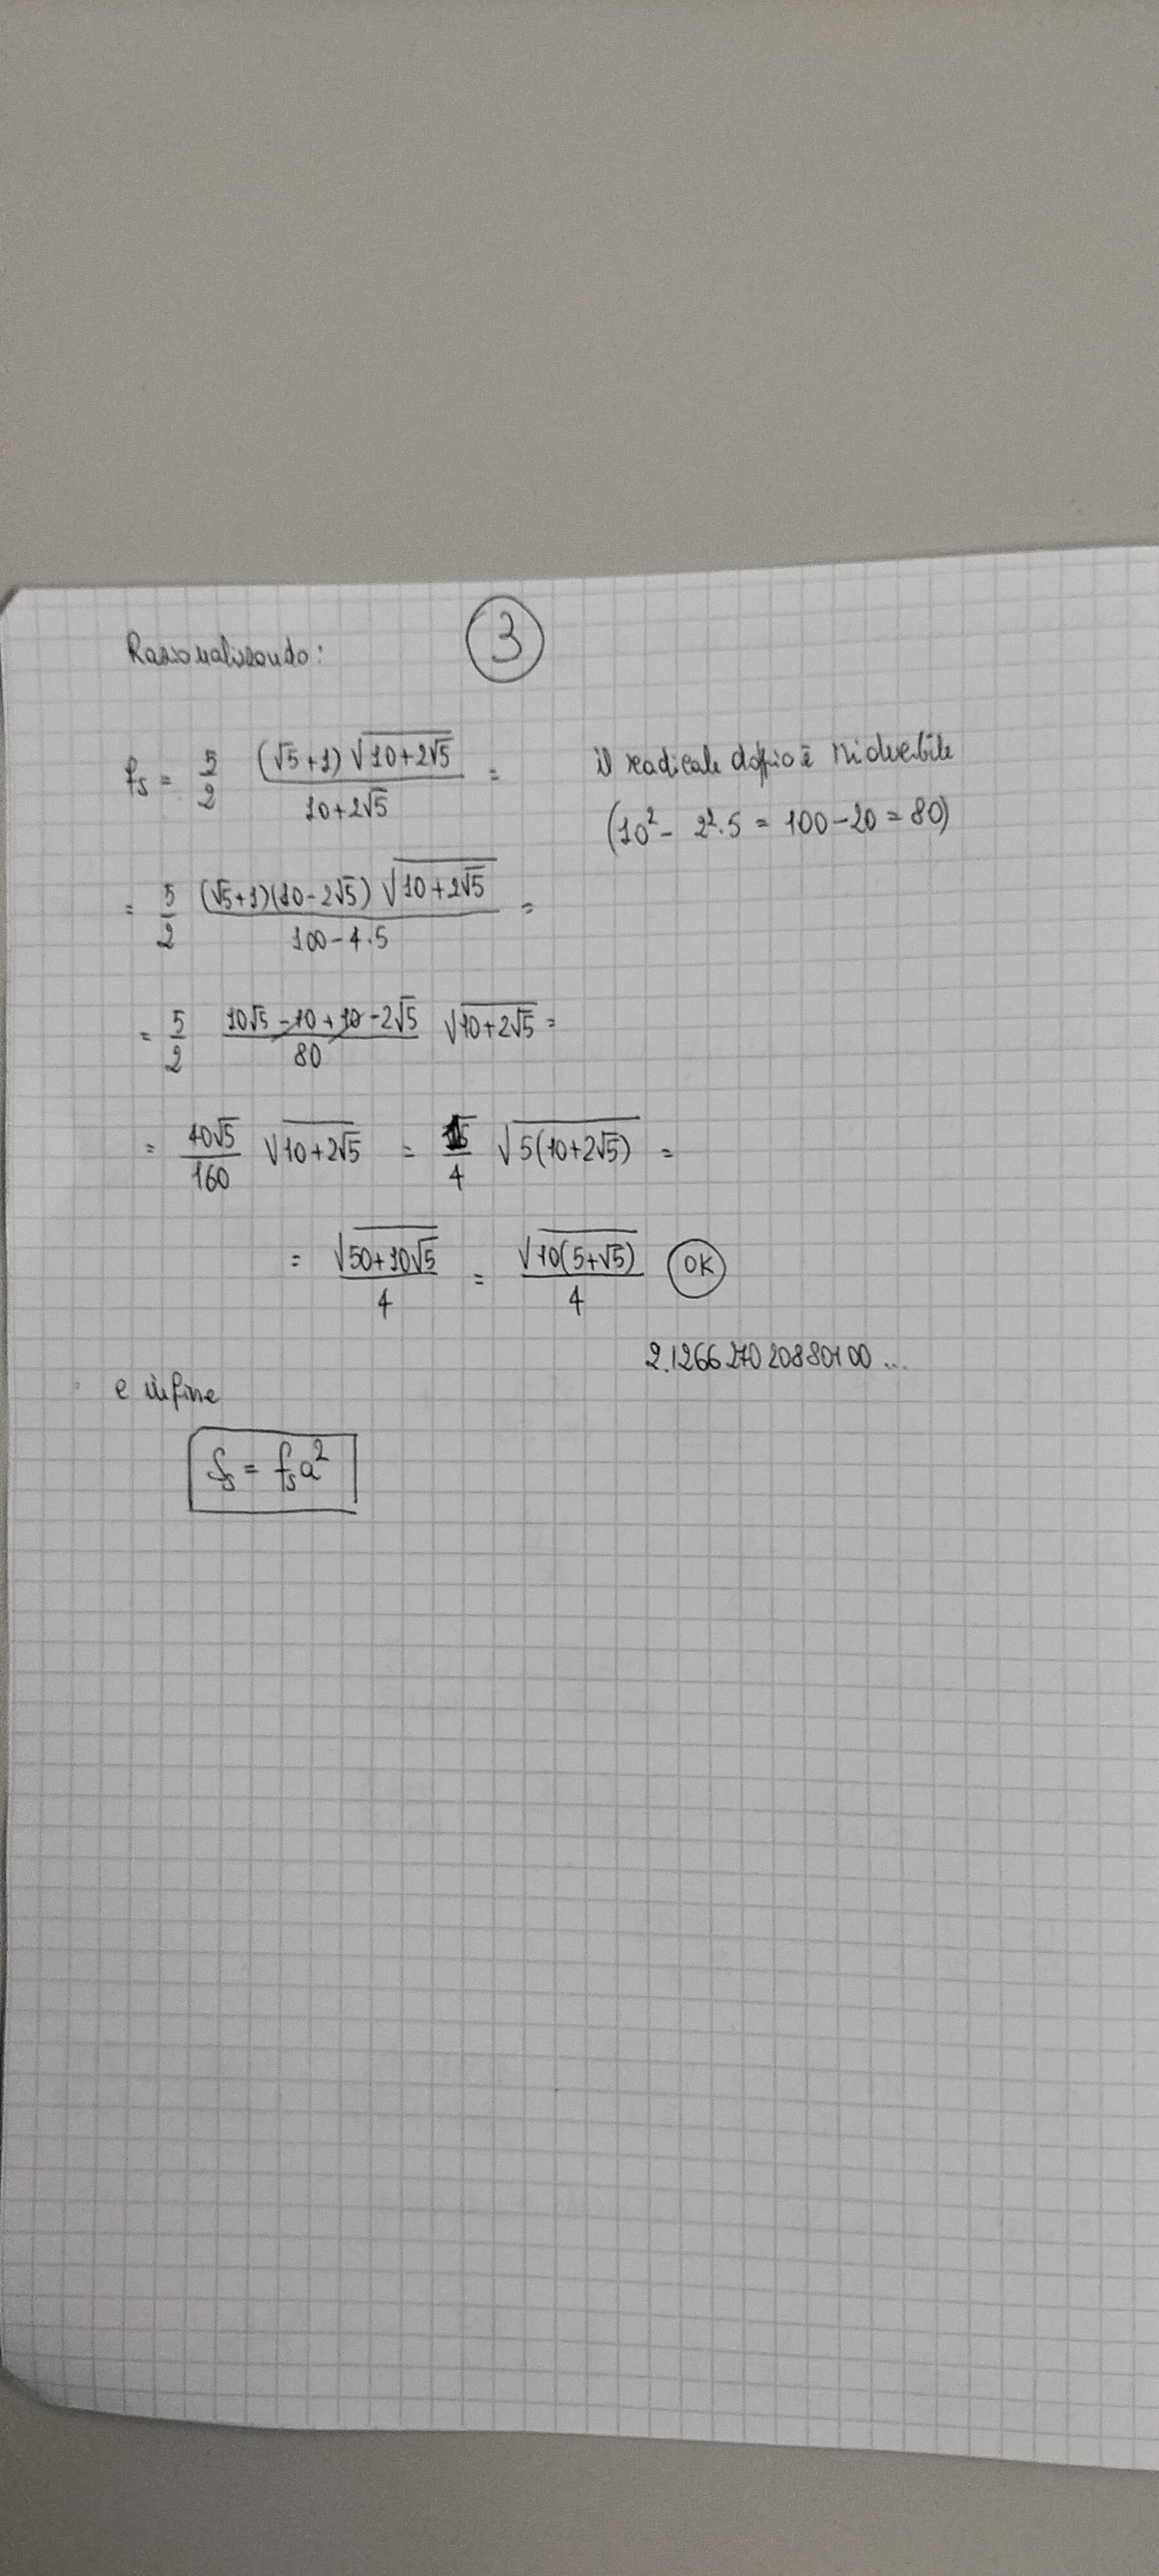 3
Razionalizzando:
f₅ = 5/2 (√5+1)√(10+2√5) / (10+2√5) =
il radicale doppio è
(10² - 2²·5 = 100-20 = 80)
= 5/2 (√5+1)(10-2√5)√(10+2√5) / (100-4·5) =
= 5/2 (10√5 -10 +10 -2√5)/80 √(10+2√5) =
= 40√5/160 √(10+2√5) = /4 √(5(10+2√5)) =
= √(50+10√5)/4 = √(10(5+√5))/4 OK
2.126627020880100...
e infine
S₅ = f₅a²